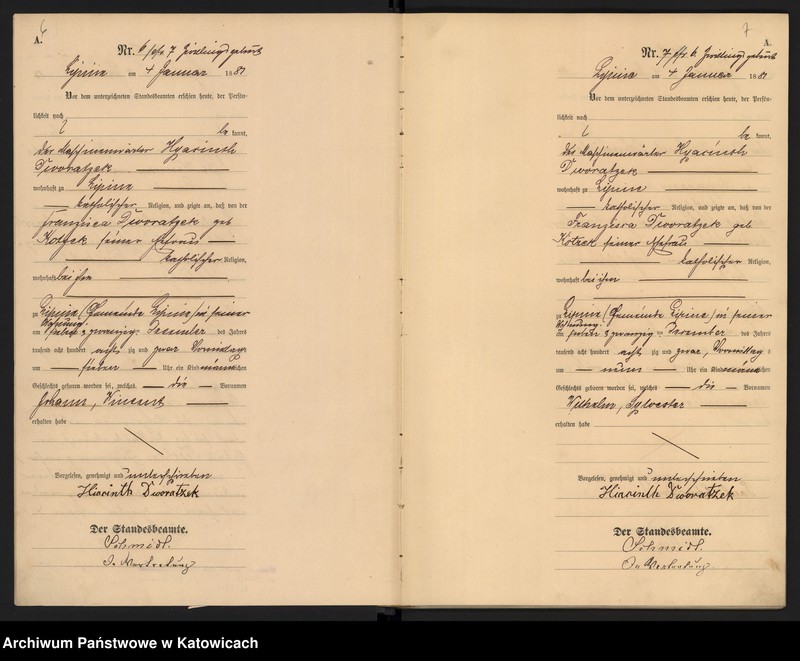 6
A.
Nr. 6 /cfr. 7 Zwillingsgeburt
Lipine am 4 Januar 1881
Vor dem unterzeichneten Standesbeamten erschien heute, der Persön-
lichkeit nach
be kannt,
der Maschinenwärter Hyacinth
Dworatzek
wohnhaft zu Lipine
katholischer Religion, und zeigte an, daß von der
Franzisca Dworatzek geb
Kotzek seiner Ehefrau
katholischer Religion,
wohnhaft bei ihm
zu Lipine (Gemeinde Lipine) in seiner
Wohnung
am sieben & zwanzig Dezember des Jahres
tausend acht hundert acht zig und zwar Vormittags
um sieben Uhr ein Kind männlichen
Geschlechts geboren worden sei, welches die Vornamen
Johann, Vincent
erhalten habe
Vorgelesen, genehmigt und unterschrieben
Hiacinth Dworatzek
Der Standesbeamte.
Schmidt.
In Vertretung
7
A.
Nr. 7 /cfr 6 Zwillingsgeburt
Lipine am 4 Januar 1881
Vor dem unterzeichneten Standesbeamten erschien heute, der Persön-
lichkeit nach
be kannt,
der Maschinenwärter Hyacinth
Dworatzek
wohnhaft zu Lipine
katholischer Religion, und zeigte an, daß von der
Franzisca Dworatzek geb
Kotzek seiner Ehefrau
katholischer Religion,
wohnhaft bei ihm
zu Lipine (Gemeinde Lipine) in seiner
Wohnung
am sieben & zwanzig Dezember des Jahres
tausend acht hundert acht zig und zwar, Vormittag s
um neun Uhr ein Kind männlichen
Geschlechts geboren worden sei, welches die Vornamen
Wilhelm, Sylvester
erhalten habe
Vorgelesen, genehmigt und unterschrieben
Hiacinth Dworatzek
Der Standesbeamte.
Schmidt.
In Vertretung
Archiwum Państwowe w Katowicach